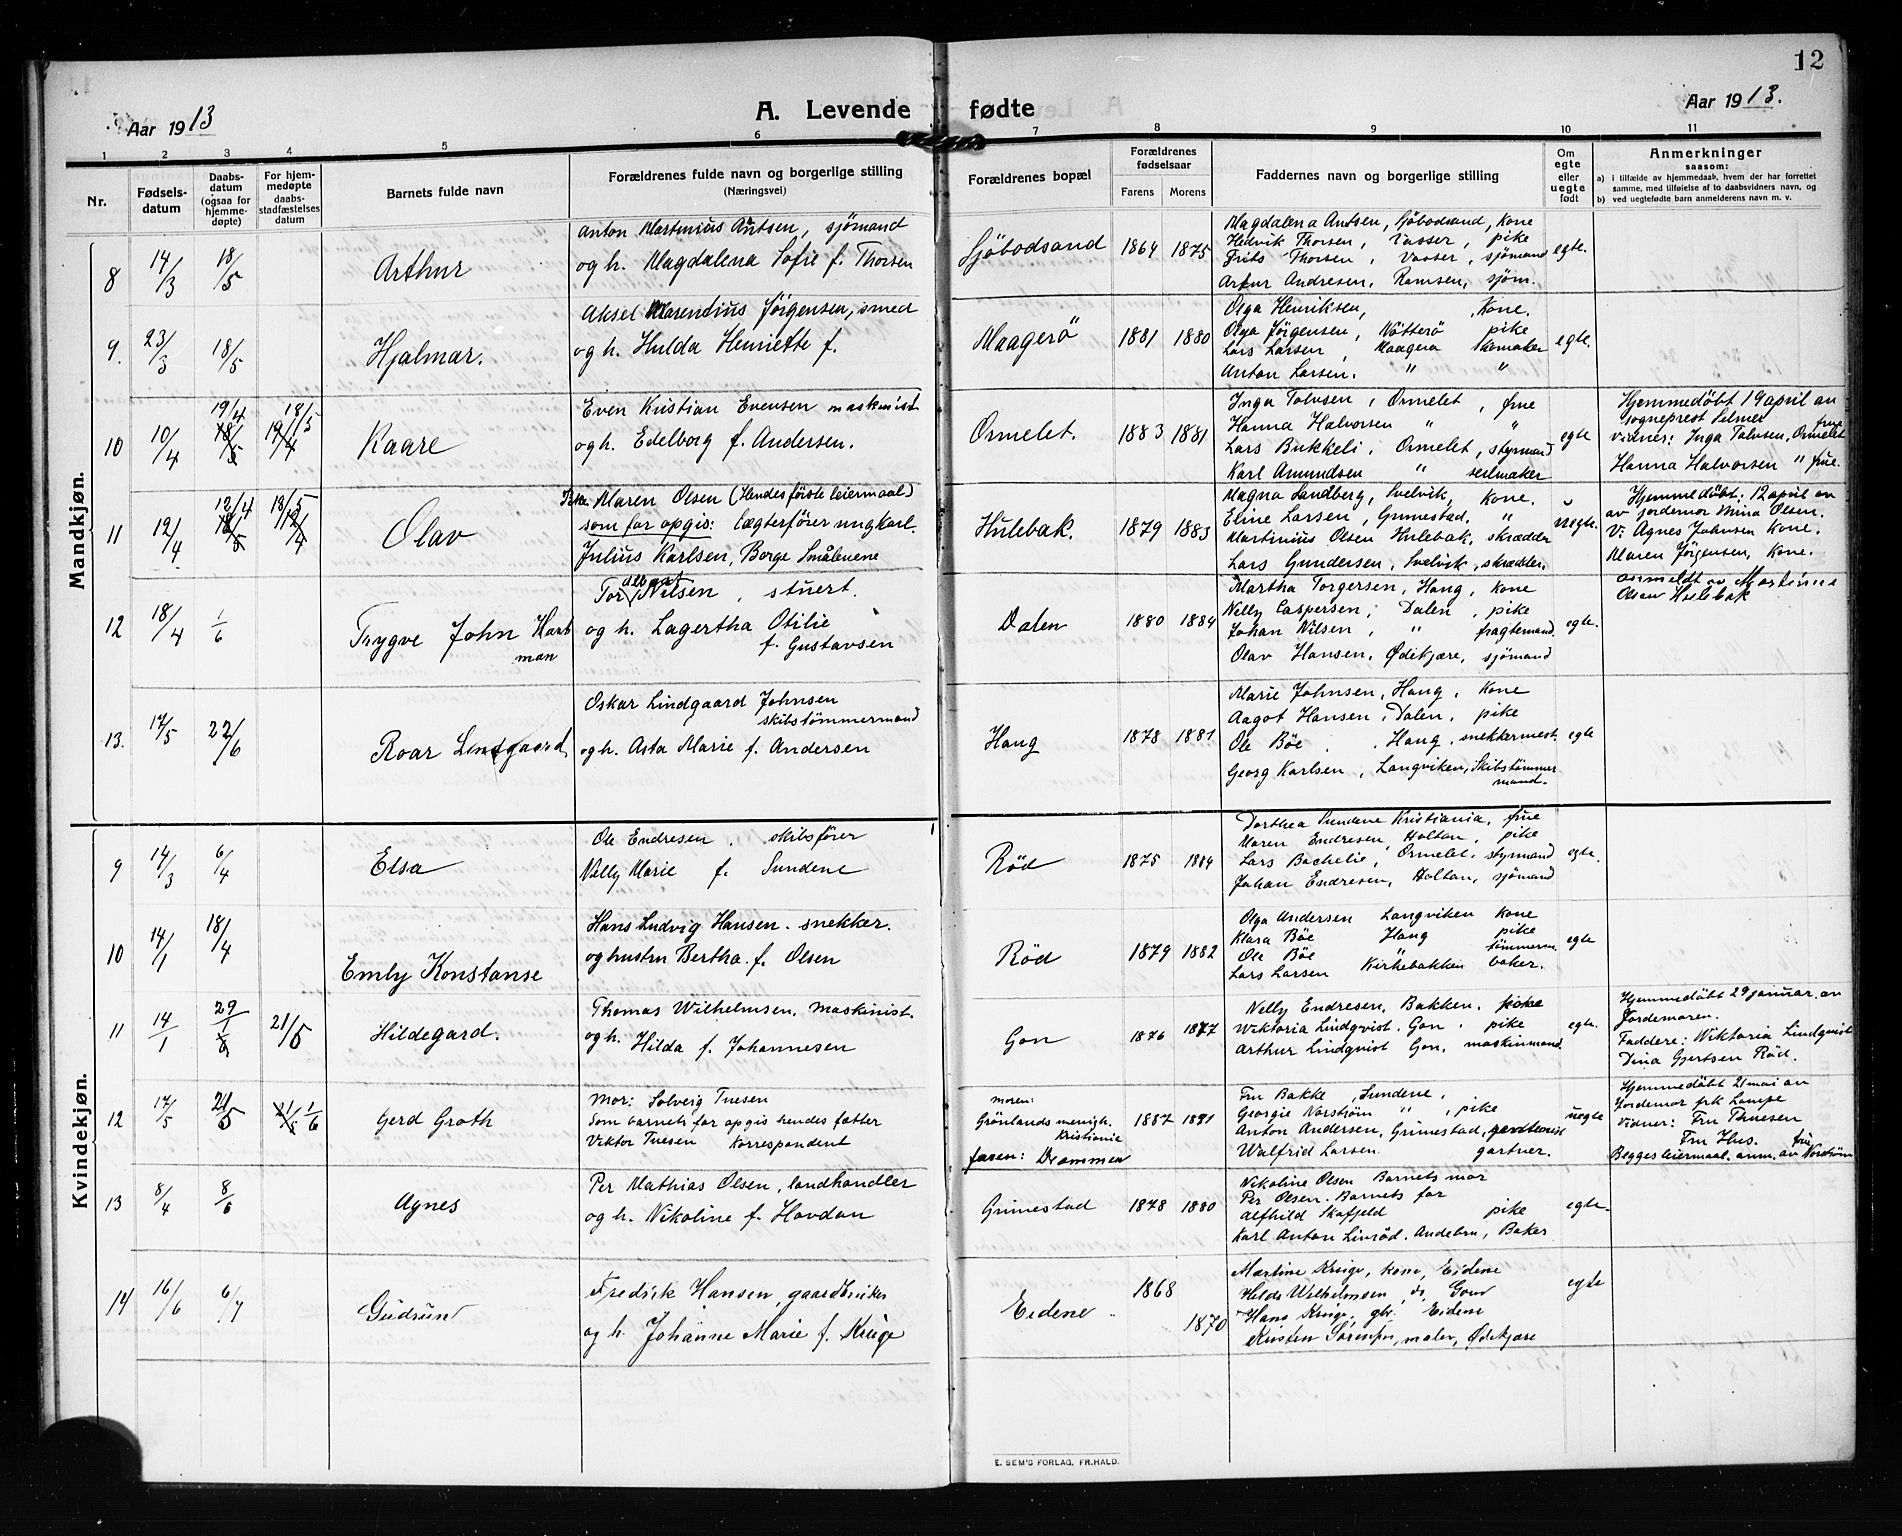 12
Aar 1913
A. Levende fødte
Aar 1913.
1 2 3 4 5 6 7 8 9 10 11
Nr.
Fødsels-
datum
Daabs-
datum
(ogsaa for
hjemme-
døpte)
For hjem-
medøpte
daabs-
stadfæstelses
datum
Barnets fulde navn
Forældrenes fulde navn og borgerlige stilling
(Næringsvei)
Forældrenes bopæl
Forældrenes
fødselsaar
Farens Morens
Faddernes navn og borgerlige stilling
Om
egte
eller
uegte
født
Anmerkninger
saasom:
a) i tilfælde av hjemmedaab, hvem der har forrettet
samme, med tilføielse af to daabsvidners navn, og
b) ved uegtefødte barn anmelderens navn m. v.
Mandkjøn.
8 14/3 18/5 Arthur
Anton Martinius Antsen, sjömand
og h. Magdalena Sofie f. Thorsen
Sjöbodsand 1864 1875
Magdalena Antsen, Sjöbodsand, kone
Hedvik Thorsen, Vasser, pike
Frits Thorsen, Vasser, sjömand
Artur Andresen, Ramsen, sjöm.
egte.
9. 23/3 18/5 Hjalmar.
Aksel Marentius Jörgensen, smed
og h. Hulda Henriette f.
Maagerö 1881 1880
Olga Henriksen, Kone.
Olga Jörgensen, Nötterö pike
Lars Larsen, Maagerö Skomaker
Anton Larsen. " "
egte.
10 10/4 19/4 18/5 Kaare
Even Kristian Evensen maskinist
og h. Edelborg f. Andersen.
Ormelet. 1883 1881
Inga Talvsen, Ormelet, frue
Hanna Halvorsen " "
Lars Bukkeli, Ormelet, styrmand
Karl Amundsen " seilmaker
egte
Hjemmedöbt 19 april av
sogneprest Selmer
Vidnes: Inga Talvsen, Ormelet frue
Hanna Halvorsen " frue.
11 12/4 12/4 18/5 Olav
Pike Maren Olsen (Hendes förste leiermaal)
som far opgis: lægterförer ungkarl.
Julius Karlsen, Borge Smålenene
Hulebak. 1879 1883
Magna Sandberg, Svelvik, Kone.
Eline Larsen, Grimestad, "
Martinius Olsen Hulebak, skrædder
Lars Gundersen, Svelvik, skrædder
uegte.
Hjemmedöbt: 12 april av
av jordemor Mina Olsen.
V: Agnes Johnsen Kone.
Maren Jörgensen, Kone.
anmeldt av Martinius
Olsen Hulebak
12 18/4 1/6 Trygve John Hart
man
Tor Nilsen, stuert.
og h. Lagertha Otilie
f. Gustavsen
Dalen 1880 1884
Martha Torgersen, Haug, kone
Nelly Caspersen, Dalen, pike
Johan Nilsen, " fragtemand
Olav Hansen, Ødekjære, sjömand
egte.
13. 17/5 22/6 Roar Lindgaard
Oskar Lindgaard Johnsen
skibstömmermand
og h. Asta Marie f. Andersen
Haug 1878 1881
Marie Johnsen, Haug, Kone
Aagot Hansen, Dalen, pike
Ole Böe, Haug, snekkermest.
Georg Karlsen, Langviken, Skibstömmer
mand.
egte
Kvindekjøn.
9 14/3 6/4 Elsa
Ole Endresen, skibsförer
Nelly Marie f. Sundene
Röd 1875 1884
Dorthea Sundene Kristiania, frue
Maren Endresen, Holtan, pike
Lars Bachelie, Ormelet, styrmand
Johan Endresen, Holtan, sjömand
egte.
10 14/1 18/4 Emly Konstanse
Hans Ludvig Hansen. snekker.
og hustru Bertha f. Olsen
Röd 1879 1882
Olga Andersen Langviken Kone
Klara Böe Haug pike
Ole Böe tömmerm.
Lars Larsen Kirkebakken baker.
egte
11 14/1 29/1 21/5 Hildegard.
Thomas Wilhelmsen, maskinist.
og h. Hilda f. Johannesen
Gon 1876 1877
Nelly Endresen, Bakken, pike
Wiktoria Lindqvist, Gon, pike
Arthur Lindqvist Gon, maskinmand.
egte.
Hjemmedöbt 29 januar av
Jordemoren.
Faddere: Wiktoria Lindqvist
Dina Gjertsen Röd.
12 17/5 21/5 1/6 Gerd Groth
Mor: Solveig Tuesen
Som barnets far opgis hendes fætter
Viktor Tuesen Korrespondent
moren:
Grönlands menigh.
Kristiania
faren: Drammen
1887 1891
Fru Bakke, Sundene,
Georgie Norström " , pike
Anton Andersen, Grimestad,
Walfrid Larsen gartner.
uegte
Hjemmedöbt 21 mai av
Jordemor frk Lampe
Vidner: Fru Thuesen
Fru Hus.
Begges leiermaal. anm. av fru Norström
13 8/4 8/6 Agnes
Per Mathias Olsen, landhandler
og h. Nikoline f. Havdan
Grimestad 1878 1880
Nikoline Olsen Barnets mor
Per Olsen. Barnets far
Alfhild Skafjeld pike
Karl Anton Linröd. Andebu, Baker
egte.
14 16/6 6/7 Gudrun
Fredrik Hansen, gaardbruker
og h. Johanne Marie f. Kruge
Eidene 1868 1870
Martine Kruge, kone, Eidene
Helda Wilhelmsen, ds, Gon
Hans Kruge, gbr. Eidene
Kristen Sörensen, maler, Ødekjære
egte
E. SEM'S FORLAG, FR.HALD.